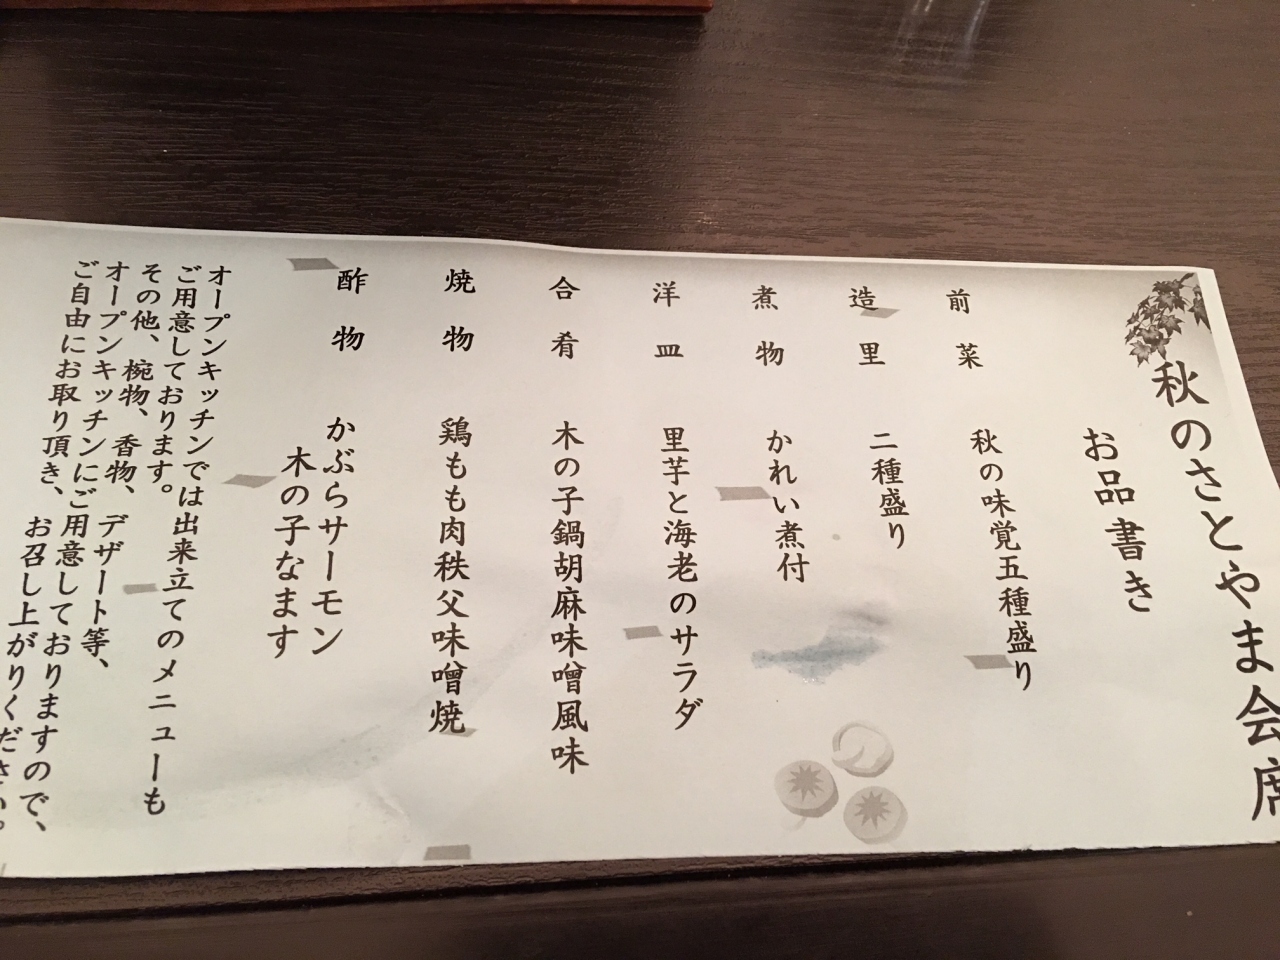 秋のさとやま会席
お品書き
前菜 秋の味覚五種盛り
造里 二種盛り
煮物 かれい煮付
洋皿 里芋と海老のサラダ
合肴 木の子鍋胡麻味噌風味
焼物 鶏もも肉秩父味噌焼
酢物 かぶらサーモン
木の子なます
オープンキッチンでは出来立てのメニューも
ご用意しております。
その他、椀物、香物、デザート等、
オープンキッチンにご用意しておりますので、
ご自由にお取り頂き、お召し上がりください。